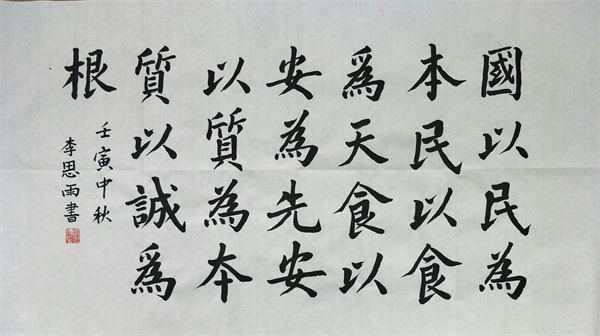 國以民為
本民以食
爲天食以
安為先安
以質為本
質以誠爲
根
壬寅中秋
李思雨書